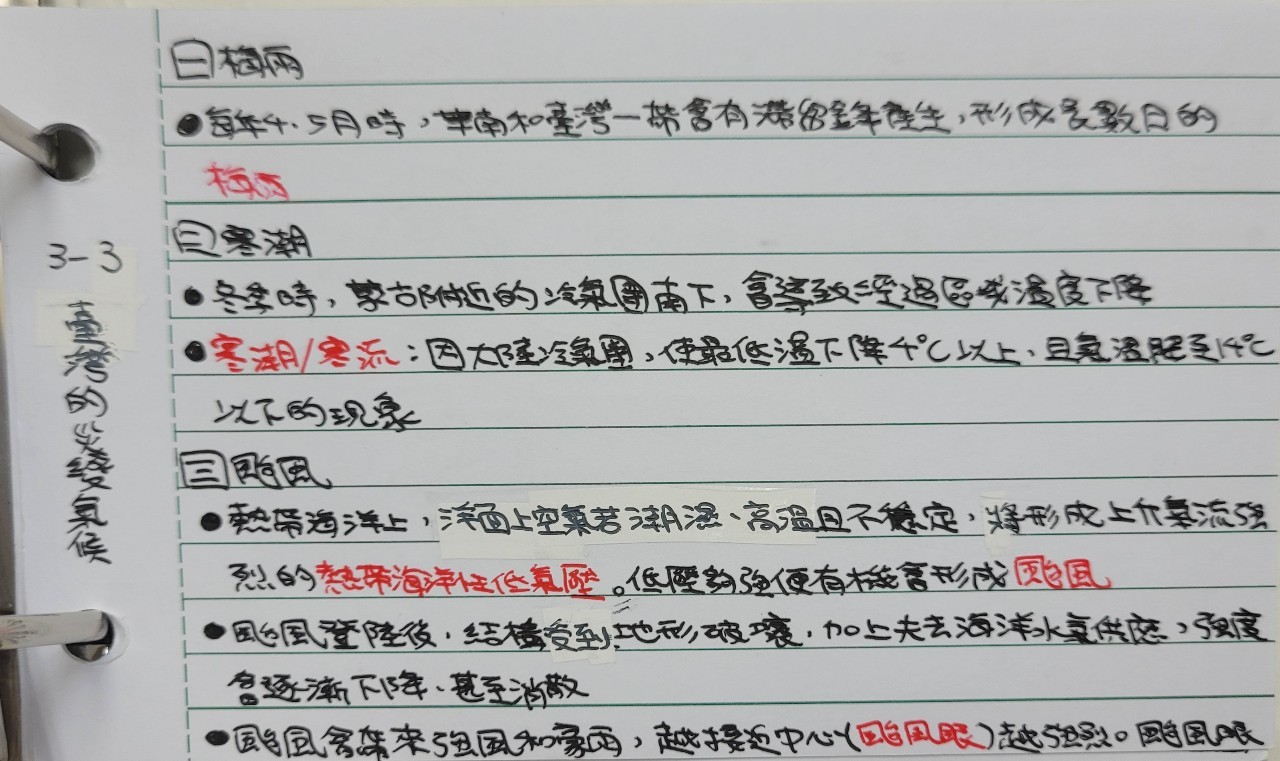 3-3
臺灣的災變氣候
一 梅雨
●每年4、5月時，華南和臺灣一帶會有滯留鋒產生，形成長數日的
梅雨
二 寒潮
●冬季時，蒙古附近的冷氣團南下，會導致經過區域溫度下降
●寒潮/寒流：因大陸冷氣團，使最低溫下降4°C以上，且氣溫肥至14°C
以下的現象
三 颱風
●熱帶海洋上，洋面上空氣若潮濕、高溫且不穩定，將形成上升氣流強
烈的熱帶海洋性低氣壓。低壓夠強便有機會形成颱風
●颱風登陸後，結構受到地形破壞，加上失去海洋水氣供應，強度
會逐漸下降、甚至消散
●颱風會帶來強風和豪雨，越接近中心(颱風眼)越強烈。颱風眼